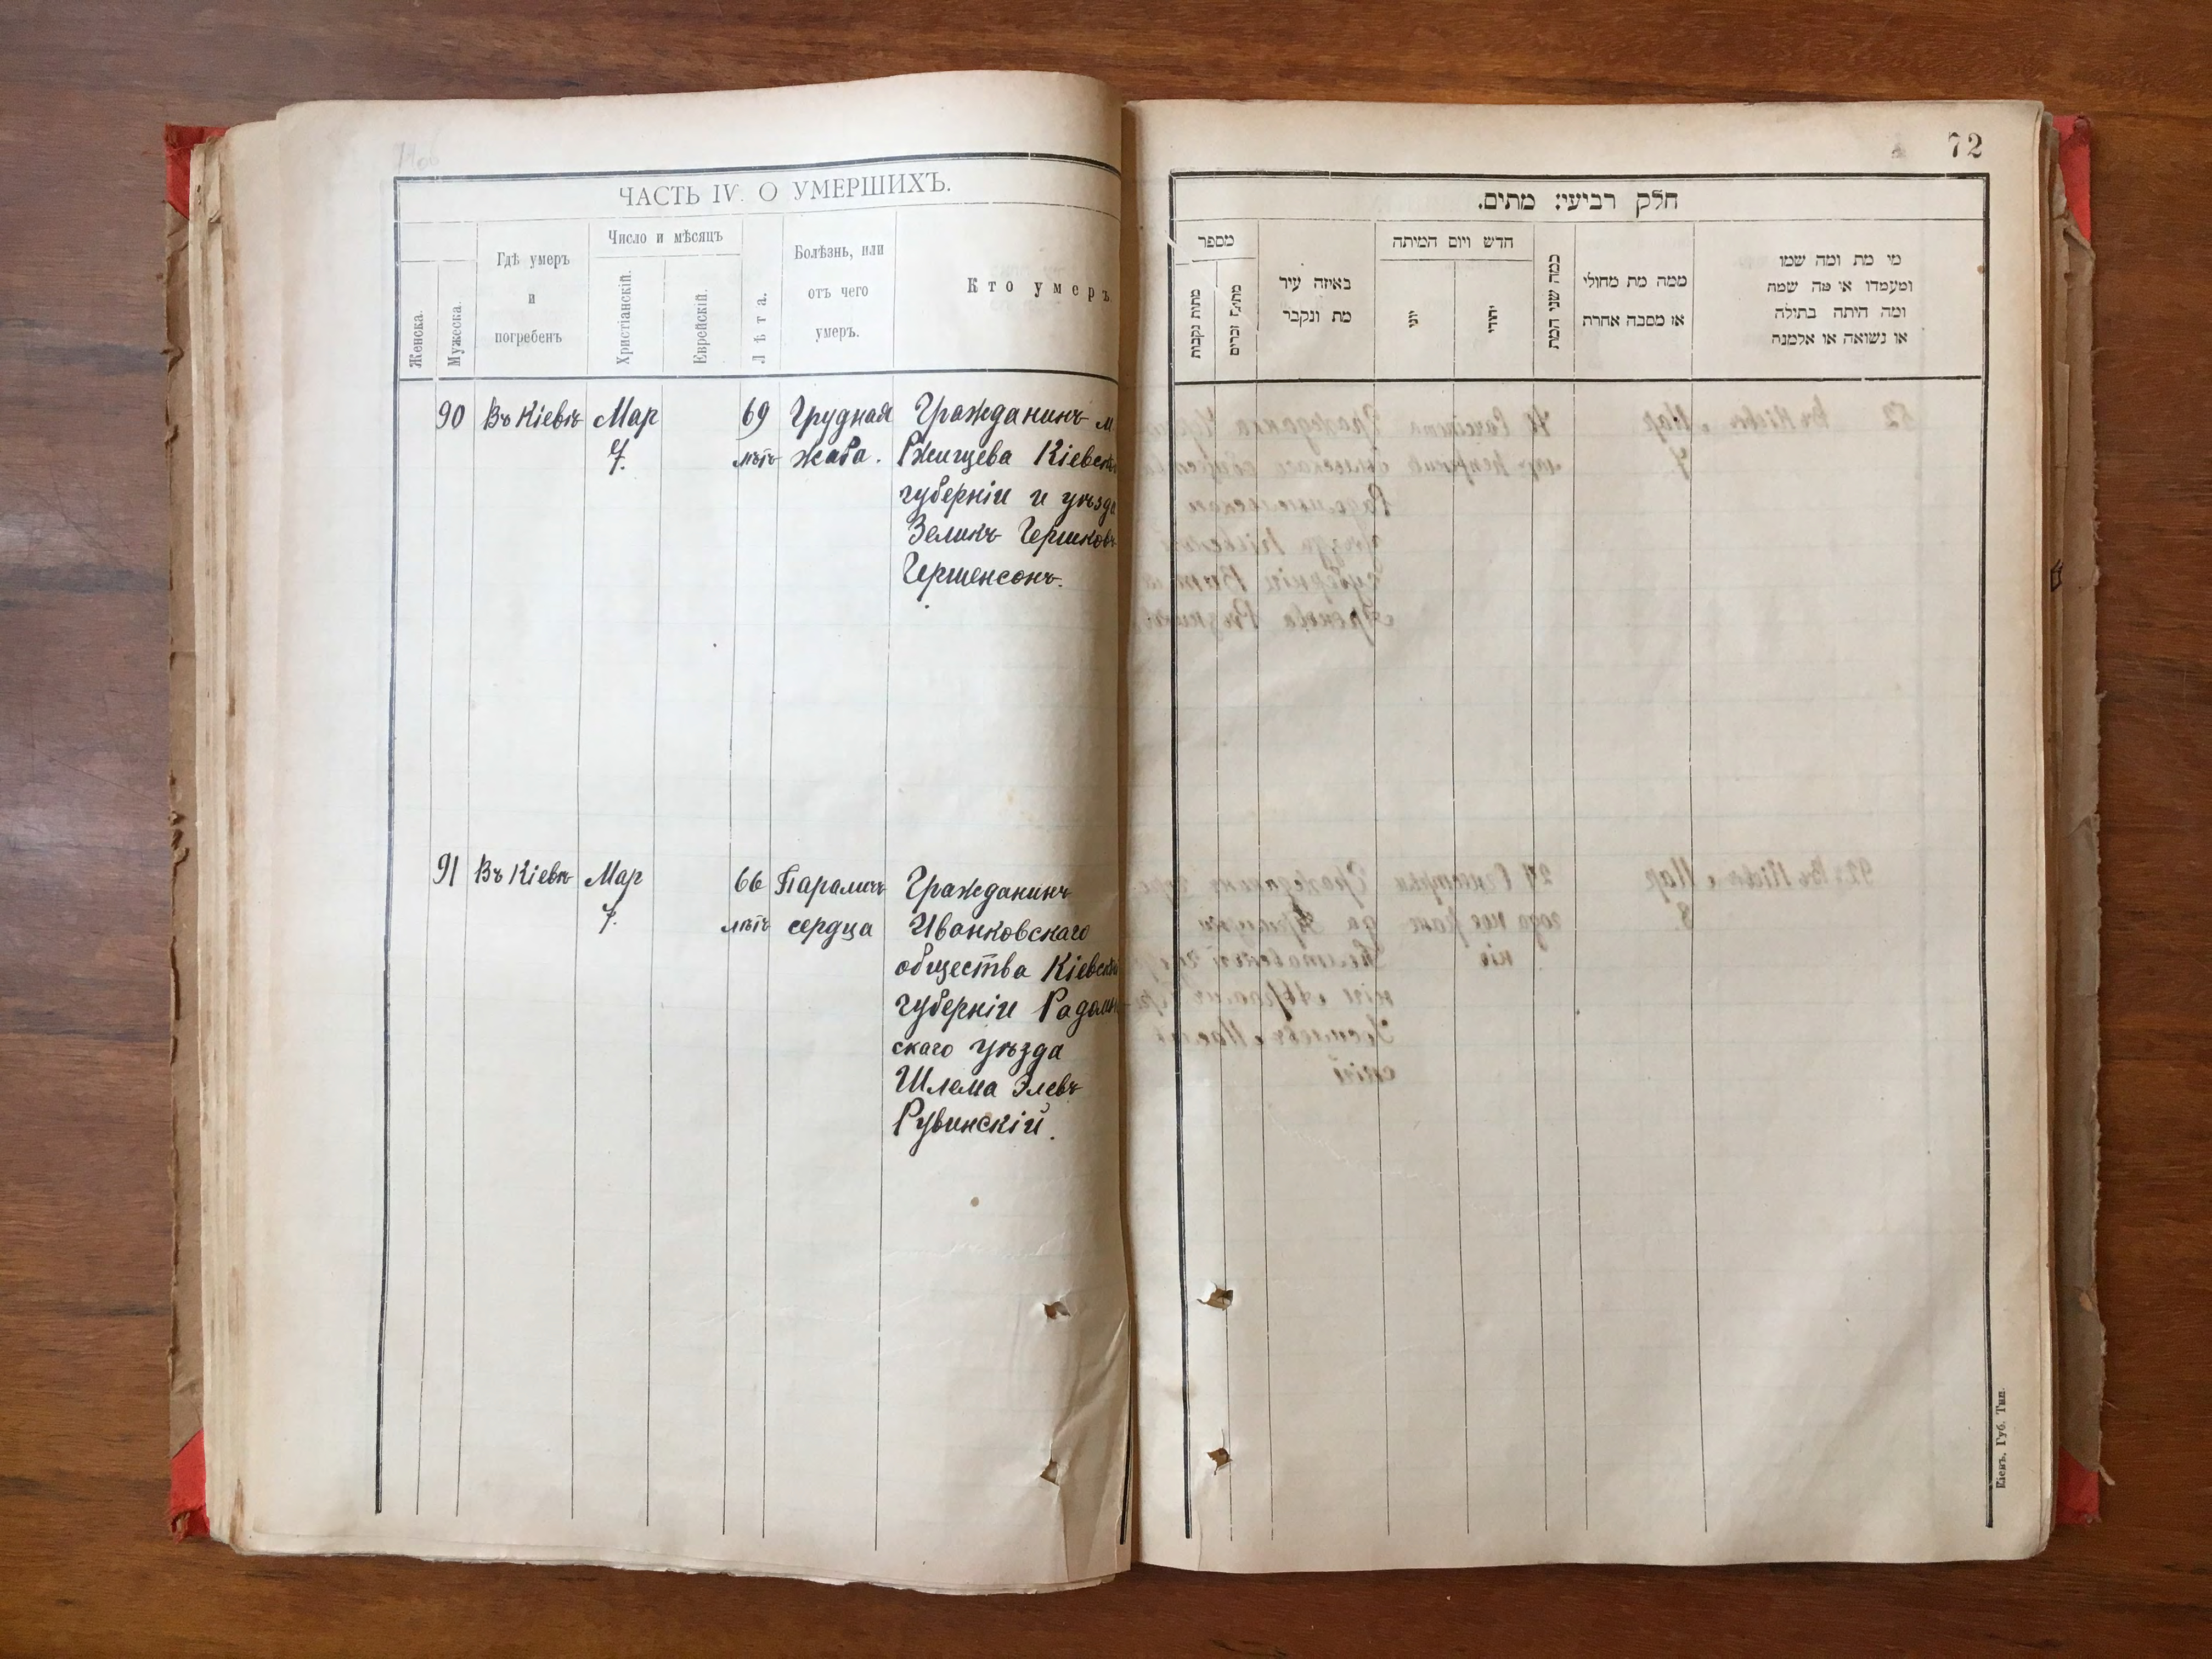 72
ЧАСТЬ IV. О УМЕРШИХЪ.
Женска.
Мужеска.
Гдѣ умеръ
и
погребенъ
Число и мѣсяцъ
Христіанскій.
Еврейскій.
Лѣта.
Болѣзнь, или
отъ чего
умеръ.
Кто умеръ.
90 Въ Кіевѣ Мар 69 Грудная Гражданинъ м
7. лѣтъ жаба. Ржищева Кіевск
губерніи и уѣзда
Зеликъ Гершковъ
Гершенсонъ.
91 Въ Кіевѣ Мар 66 Параличъ Гражданинъ
7. лѣтъ сердца Иванковскаго
общества Кіевской
губерніи Радомы
скаго уѣзда
Шлема Элевъ
Рувинскій.
חלק רביעי: מתים.
מספר
מתות נקבות
מתים זכרים
באיזה עיר
מת ונקבר
חדש ויום המיתה
יוני
יהודי
כמה שני המת
ממה מת מחולי
או מסבה אחרת
מי מת ומה שמו
ומעמדו או מה שמה
ומה היתה בתולה
או נשואה או אלמנה
Кіевъ, Губ. Тип.